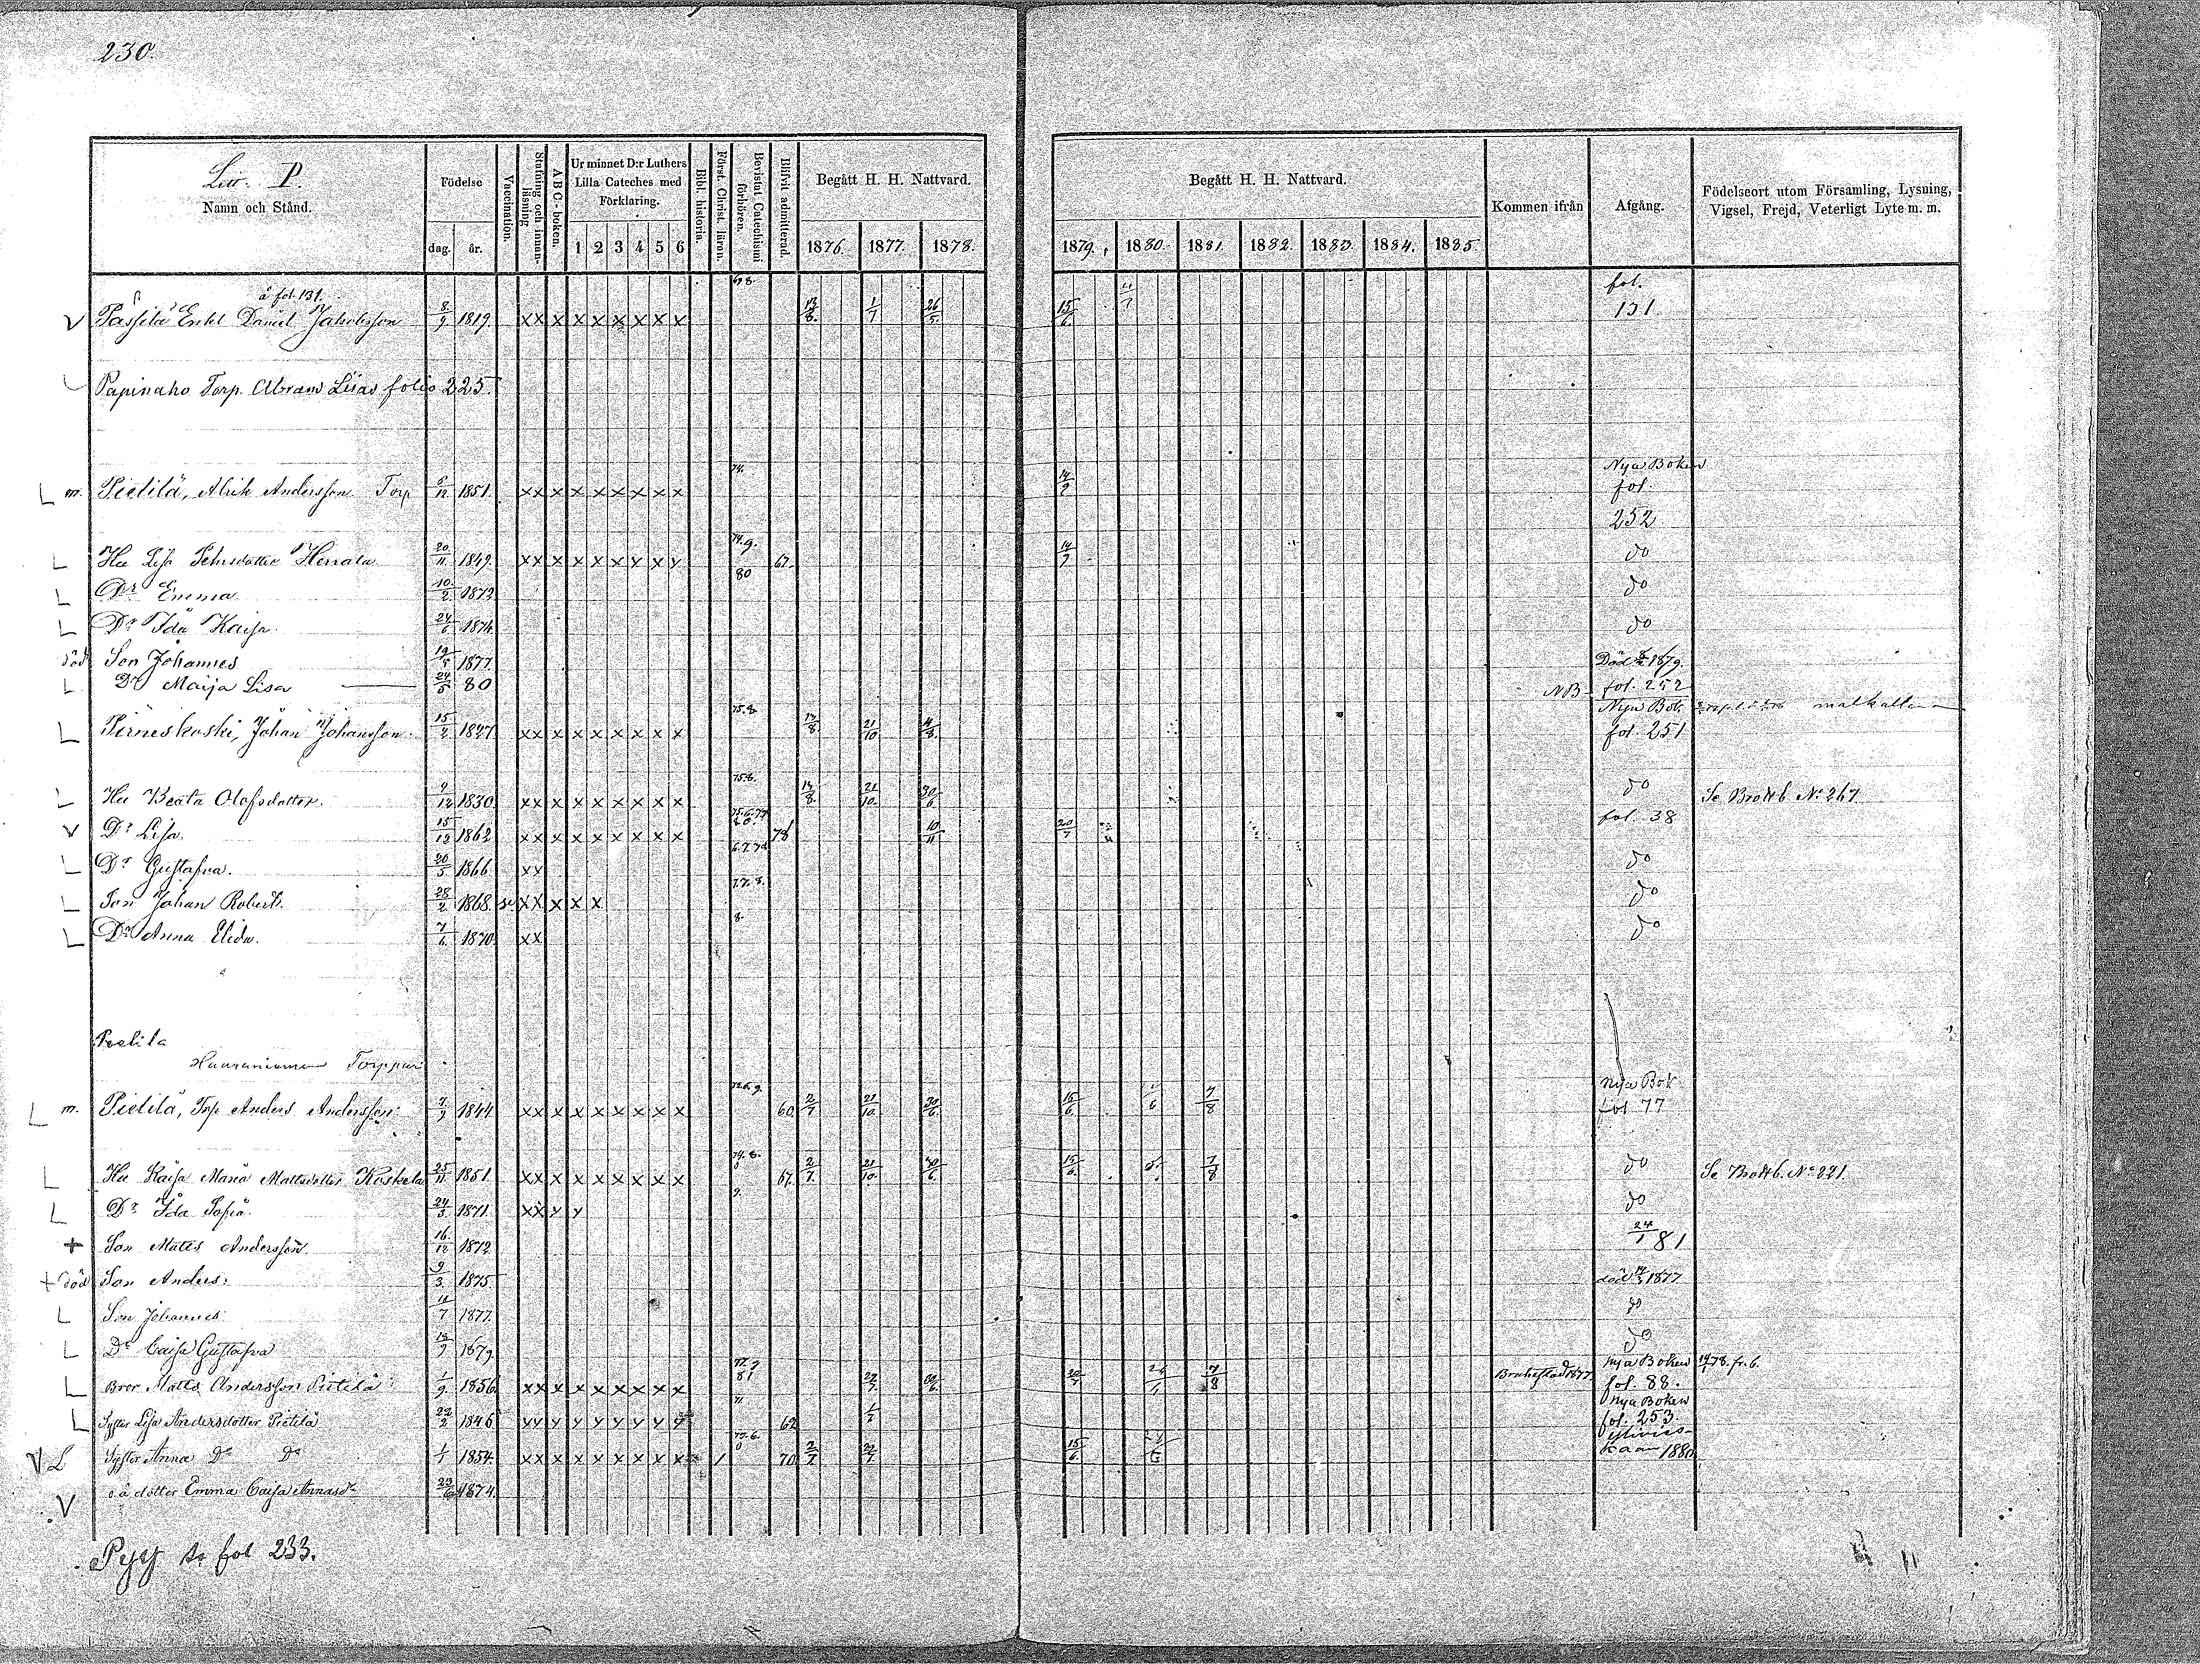 230.
Litt. P.
Namn och Stånd.
Födelse
dag. år.
Vaccination.
Stafning och innan-läsning
A B C-boken.
Ur minnet D:r Luthers Lilla Cateches med Förklaring.
1 2 3 4 5 6
Bibl. historia.
Först. Christ. läran.
Bevistat Catechismi förhören.
Blifvit admitterad.
Begått H. H. Nattvard.
1876. 1877. 1878.
Begått H. H. Nattvard.
1879. 1880. 1881. 1882. 1883. 1884. 1885.
Kommen ifrån
Afgång.
Födelseort utom Församling, Lysning, Vigsel, Frejd, Veterligt Lyte m. m.
å fol. 131.
V Passila Enkl Daniel Jakobsson 8/9 1819. x x x x x x x x x 13/8. 1/7 26/5 15/6. 4/7 fol. 131
Papinaho Torp. Abram Lisas folio 225.
L m. Pietilä, Alrik Andersson Torp 6/12 1851. x x x x x x x x x 74. 14/9 Nya Boken fol. 252
L Hu Lisa Pehrsdotter Herrala 20/11 1849. x x x x x x x x x 74. 9. 80 67. 14/9 do
L Dr Emma 10/2 1873 do
L Dr Ida Kaisa. 24/6 1874 do
död Son Johannes 19/5 1877. Död 1879.
L Dr Maija Lisa 24/5 80 NB fol. 252
L Pirneskoski, Johan Johansson. 15/2 1827. x x x x x x x x x 75.8. 13/8 21/10 4/8. Nya Bok fol. 251
L Hu Beata Olofsdotter. 9/12 1830. x x x x x x x x x 75.8. 13/8. 21/10. 30/6. do Se Brottb No 267
V Dr Lisa. 15/12 1862 x x x x x x x x x 78 10/11 20/7 fol. 38
L Dr Gustafva. 20/5 1866. x x 6.7.7d do
L Son Johan Robert. 28/2 1868. x x x x x 7.7.8. do
L Dr Anna Elida. 7/6 1870. x x 8. do
Torppari
L m. Pietilä, Torp Anders Andersson. 7/9 1844. x x x x x x x x x 60. 2/7 21/10. 30/6. 15/6. 7/8 Nya Bok fol 77
L Hu Kaisa Maria Mattsdotter Koskela 25/11 1851. x x x x x x x x x 74. 8. 67. 2/7. 21/10. 30/6. 15/6. 7/8 do Se Brottb. No 221.
L Dr Ida Sofia. 24/3 1871. x x x x 9. do
+ Son Matts Andersson. 16/12 1872 24/1 81
+ död Son Anders. 9/3. 1875 död 1877
L Son Johannes 11/7 1877. do
L Dr Caisa Gustafva 13/9 1879. do
L Bror Matts Andersson Pietilä 1/9 1856. x x x x x x x x x 77. 81 22/7. 30/6. 20/7 7/8 Brahestad 1877 Nya Boken fol. 88. 78. fr. b.
L Syster Lisa Andersdotter Pietilä 22/2 1846. x x x x x x x x x 71 62 Nya Boken fol. 253
V L Syster Anna Do Do 1/1 1854. x x x x x x x x x 1 70. 2/7 22/7. 15/6. Ylivieskaan 1880
V o. ä dotter Emma Caisa Annasd. 23/6 1874.
Pyy se fol 233.